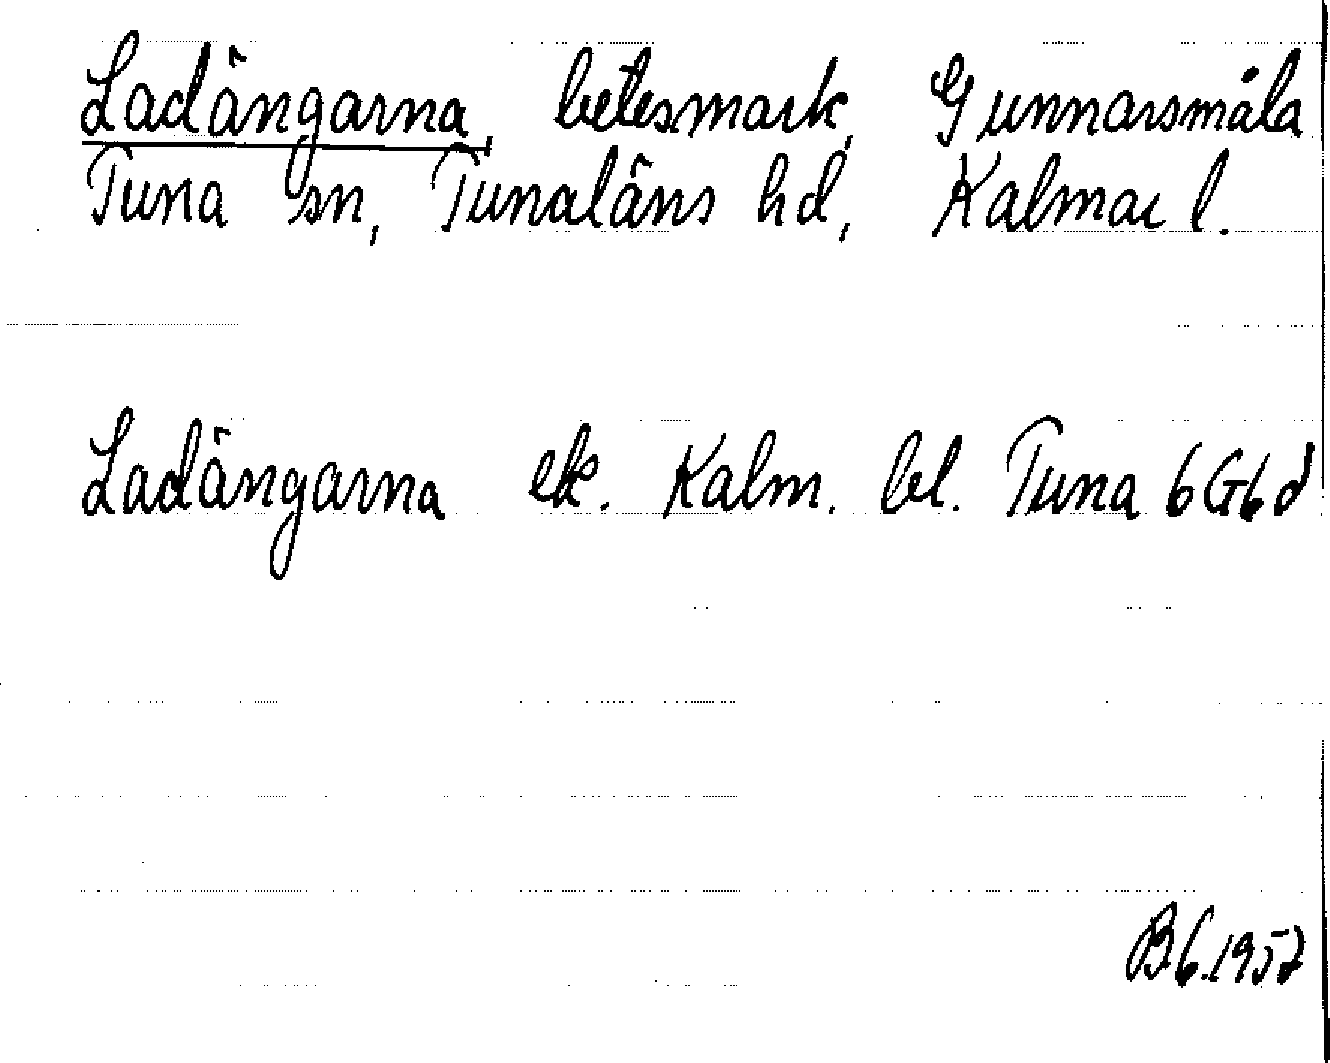 Ladängarna, betesmark, Gunnarsmåla
Tuna sn, Tunaläns hd, Kalmar l.
Ladängarna ek. Kalm. bl. Tuna 6G6d
B6.1957